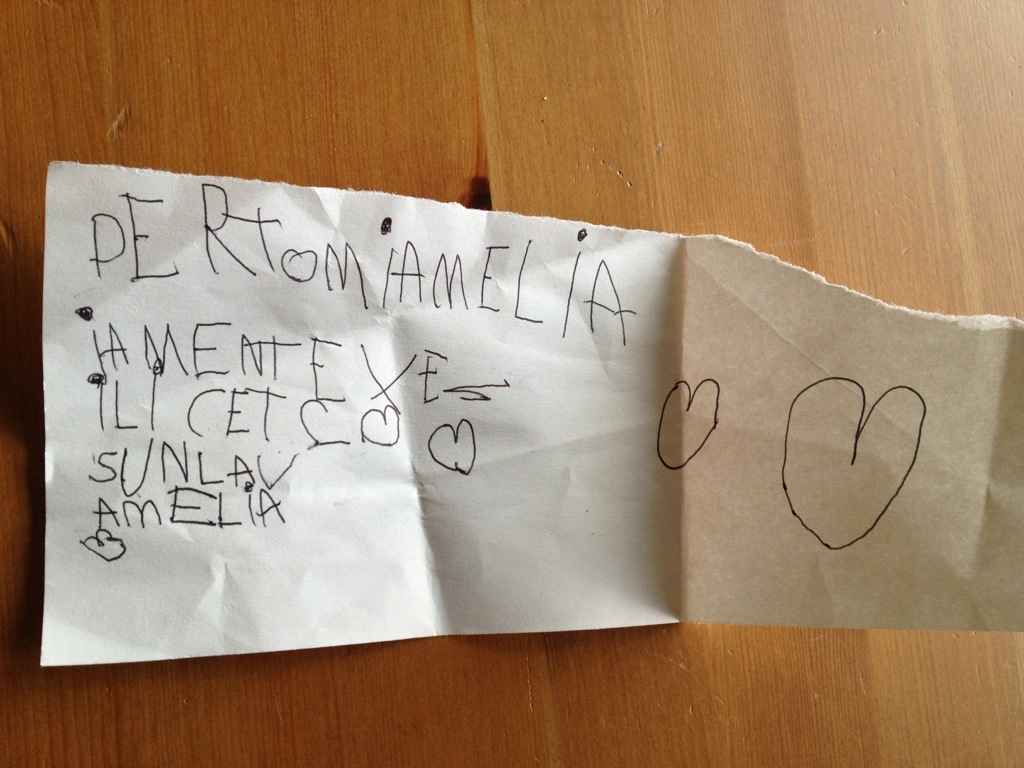 DERTOMiAMELiA
iAMENTEXES
iLiCETC
SUNLAV
AMELiA